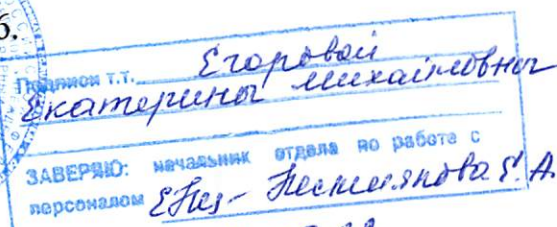 6.
Подписи т.т. Егоровой
Екатерины Михайловны
ЗАВЕРЯЮ: начальник отдела по работе с
персоналом Е.А.